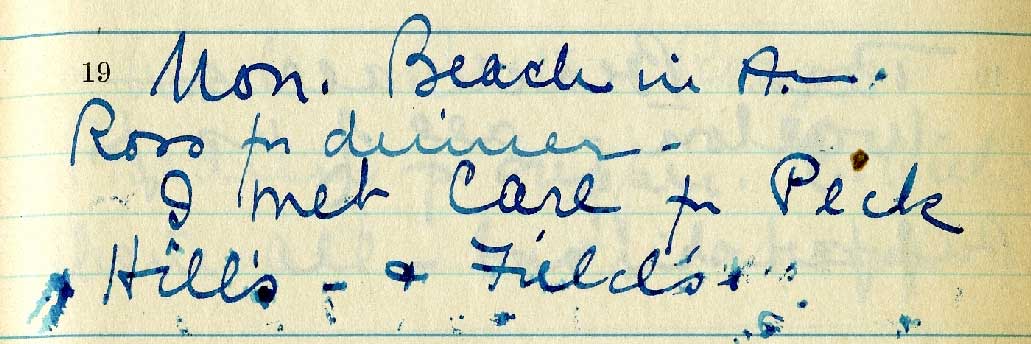 19 Mon. Beach in A.—.
Ross for dinner -
I met Care for Peck
Hill's - & Field's